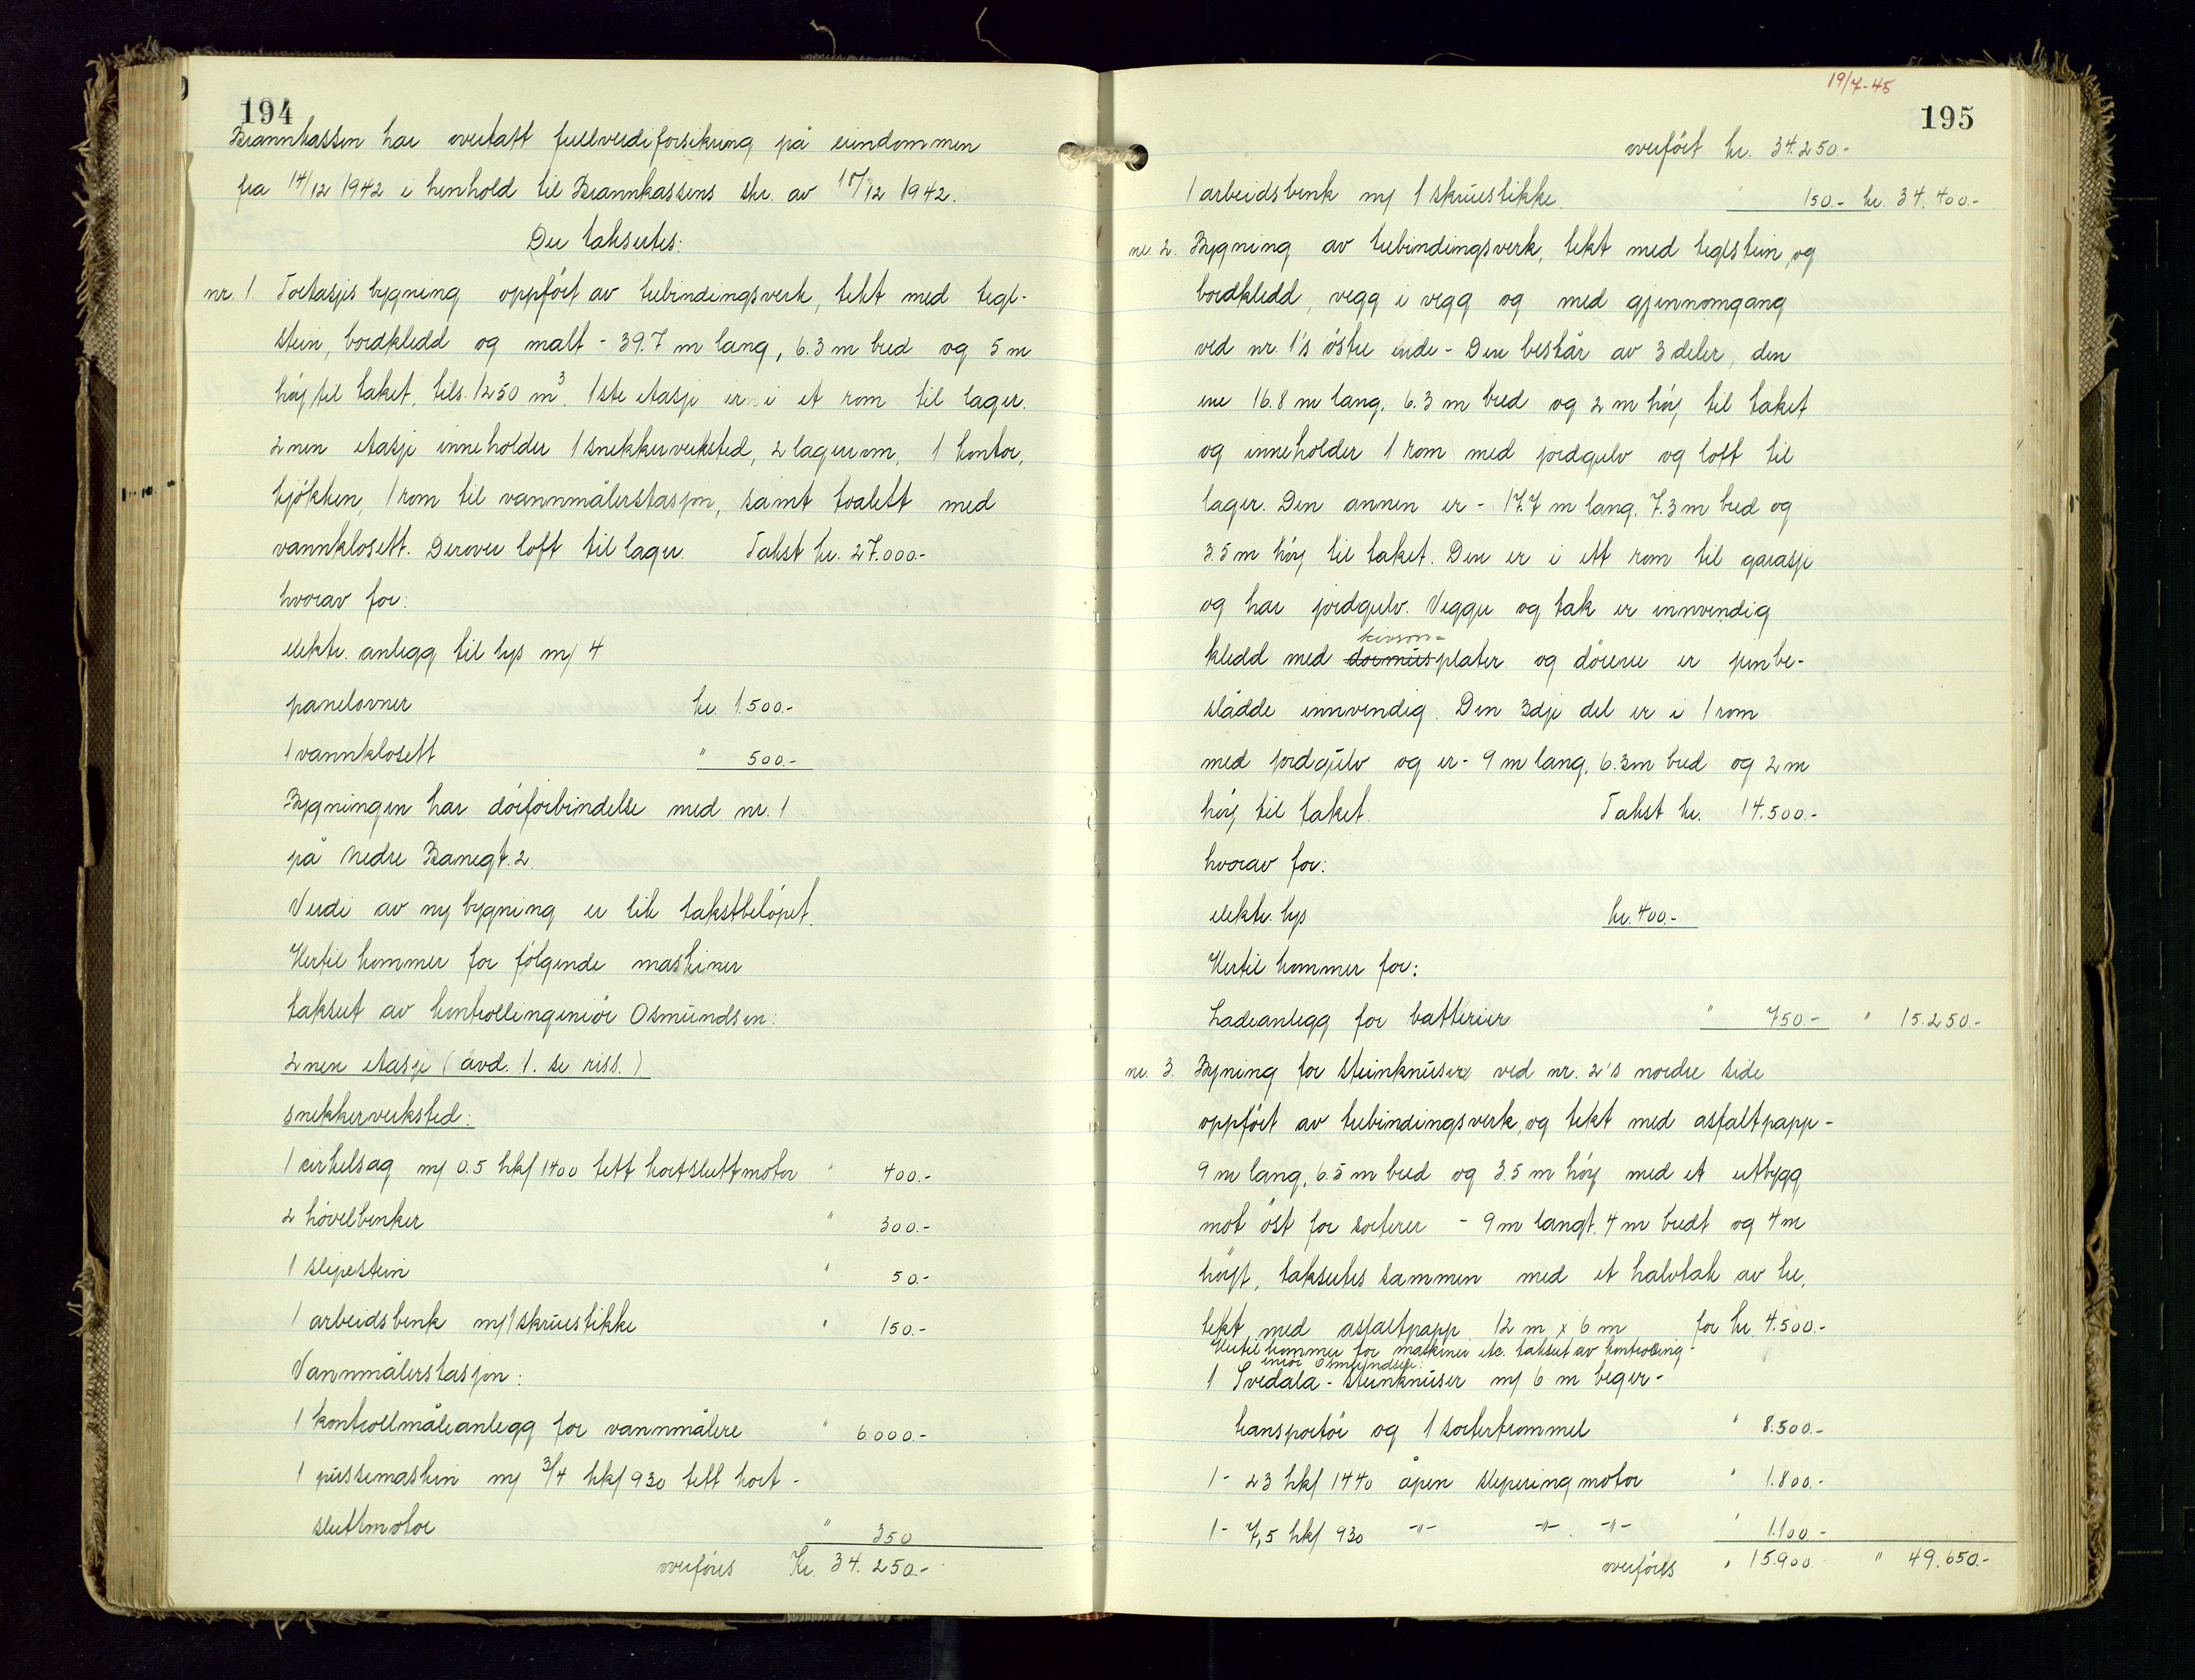 194
Brannkassen har overtatt fullverdiforsikring på eiendommen
fra 14/12 1942 i henhold til Brannkassens skr. av 18/12 1942.
Der takseres:
nr. 1. Toetasjes bygning oppført av trebindingsverk, tekt med tegl-
stein, bordkledd og malt - 39.7 m lang, 6.3 m bred og 5 m
høy til taket, tils. 1250 m³. 1ste etasje er i et rom til lager.
2nen etasje inneholder 1 snekkerverksted, 2 lagerrom, 1 kontor,
kjøkken, 1 rom til vannmålerstasjon, samt toalett med
vannklosett. Derover loft til lager. Takst kr. 27.000.-
hvorav for:
elektr. anlegg til lys m/ 4
panelovner kr. 1.500.-
1 vannklosett " 500.-
Bygningen har dørforbindelse med nr. 1
på Nedre Banegt. 2.
Verdi av ny bygning er lik takstbeløpet.
Hertil kommer for følgende maskiner
taksert av kontrollingeniør Osmundsen:
2nen etasje (avd. 1. se riss.)
snekkerverksted:
1 cirkelsag m/ 0.5 hk/ 1400 tett kortsluttmotor " 400.-
2 høvelbenker " 300.-
1 slipestein " 50.-
1 arbeidsbenk m/1 skruestikke " 150.-
Vannmålerstasjon:
1 kontrollmåleanlegg for vannmålere " 6.000.-
1 pussemaskin m/ 3/4 hk/ 930 tett kort-
sluttmotor " 350
overføres Kr. 34.250.-
19/7-45
195
overført kr. 34.250.-
1 arbeidsbenk m/ 1 skruestikke. " 150.- kr. 34.400.-
nr. 2. Bygning av trebindingsverk, tekt med teglstein, og
bordkledd, vegg i vegg og med gjennomgang
ved nr. 1's østre ende - Den består av 3 deler, den
ene 16.8 m lang, 6.3 m bred og 2 m høy til taket
og inneholder 1 rom med jordgulv og loft til
lager. Den annen er - 17.7 m lang, 7.3 m bred og
3.5 m høy til taket. Den er i ett rom til garasje
og har jordgulv. Vegger og tak er innvendig
kinson-
kledd med dormusplater og dørene er jernbe-
slådde innvendig. Den 3dje del er i 1 rom
med jordgulv og er - 9 m lang, 6.3m bred og 2 m
høy til taket. Takst kr. 14.500.-
hvorav for:
elektr. lys kr. 400.-
Hertil kommer for:
Ladeanlegg for batterier " 750.- " 15.250.-
nr. 3. Bygning for steinknuser ved nr. 2's nordre side
oppført av trebindingsverk, og tekt med asfaltpapp -
9 m lang, 6.5 m bred og 3.5 m høy med et utbygg
mot øst for sorterer - 9 m langt. 4 m bredt og 4 m
høyt, takseres sammen med et halvtak av tre,
tekt med asfaltpapp 12 m x 6 m for kr. 4.500.-
Hertil kommer for maskiner etc. taksert av kontrolling-
eniør Osmundsen:
1 Svedala - steinknuser m/ 6 m beger-
transportør og 1 sortertrommel " 8.500.-
1- 23 hk/ 1440 åpen slepering motor " 1.800.-
1- 7,5 hk/ 930 -"- -"- -"- " 1.100.-
overføres " 15.900. " 49.650.-